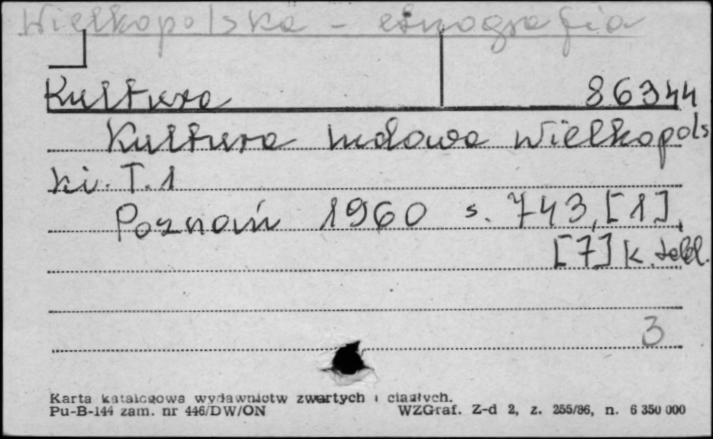 Wielkopolska - etnografia
Kultura 86344
Kultura ludowa Wielkopols
ki. T. 1
Poznań 1960 s. 743, [1],
[7] k. tabl.
3
Karta katalogowa wydawnictw zwartych i ciągłych.
Pu-B-144 zam. nr 446/DW/ON WZGraf. Z-d 2, z. 255/86, n. 6 350 000